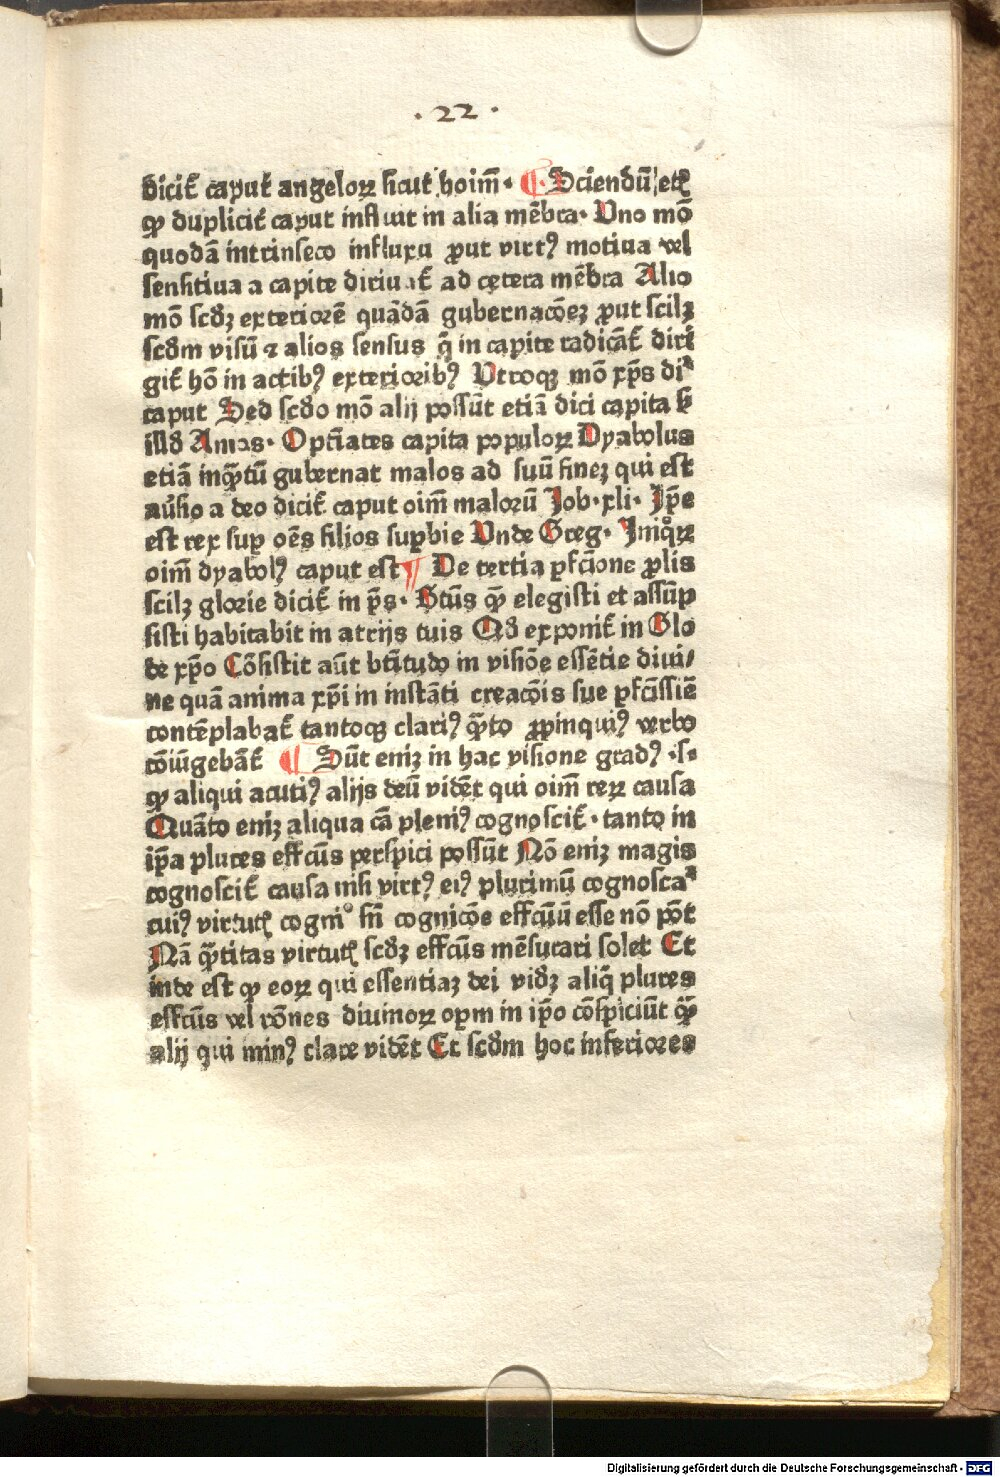 · 22 ·
dicit᷑ caput angeloꝝ sicut hoim̄· ¶ Sciendū etꝭ
ꝙ duplicit᷑ caput influit in alia mēbra· Uno mō
quodā intrinseco influxu ꝓut virtꝰ motiua vel
sensitiua a capite diriuat᷑ ad cętera mēbra Alio
mō scd̄ꝫ exteriorē quādā gubernacōeꝫ ꝓut scilꝫ
scd̄m visū ⁊ alios sensus q̄ in capite radicāt᷑ diri
git᷑ hō in actibꝰ exterioribꝰ Utroqꝫ mō xp̄s diᷓ
caput Sed scd̄o mō alij possūt etiā dici capita ẜ
illd̄ Amos· Optīates capita populoꝝ Dyabolus
etiā inqᷓtū gubernat malos ad suū fineꝫ qui est
au̇sio a deo dicit᷑ caput oim̄ malorū Job·xli· Jp̄e
est rex suꝑ oēs filios suꝑbie Unde Greg· Jniqͦꝝ
oim̄ dyabolꝰ caput est ¶ De tertia ꝑfc̄ione ꝓlis
scilꝫ glorie dicit᷑ in p̄s· Btūs qᷓ elegisti et assūp
sisti habitabit in atrijs tuis Qd̄ exponit᷑ in Glo
de xp̄o Cōsistit aūt btītudo in visiōe essētie diui/
ne quā anima xp̄i in instāti creacōis sue ꝑfcīssiē
contēplabat᷑ tantoqꝫ clariꝰ qᷓto ꝓpinquiꝰ verbo
cōiūgebāt᷑ ¶ Sūt eniꝫ in hac visione gradꝰ ·s·
ꝙ aliqui acutiꝰ alijs deū vidēt qui oim̄ reꝝ causa
Quāto eniꝫ aliqua cā pleniꝰ cognoscit᷑· tanto in
ip̄a plures effcūs perspici possūt Nō eniꝫ magis
cognoscit᷑ causa nisi virtꝰ eiꝰ plurimū cognoscaᷓ
cuiꝰ virtutꝭ cogniͦ sn̄ cognicōe effcūū esse nō pōt
Nā qᷓtitas virtutꝭ scd̄ꝫ effcūs mēsurari solet Et
inde est ꝙ eoꝝ qui essentiaꝫ dei vidꝫ aliq̄ plures
effcūs vel rōnes diuinoꝝ opm in ip̄o cōspiciūt qᷓꝫ
alij qui minꝰ clare vidēt Et scd̄m hoc inferiores
Digitalisierung gefördert durch die Deutsche Forschungsgemeinschaft - DFG